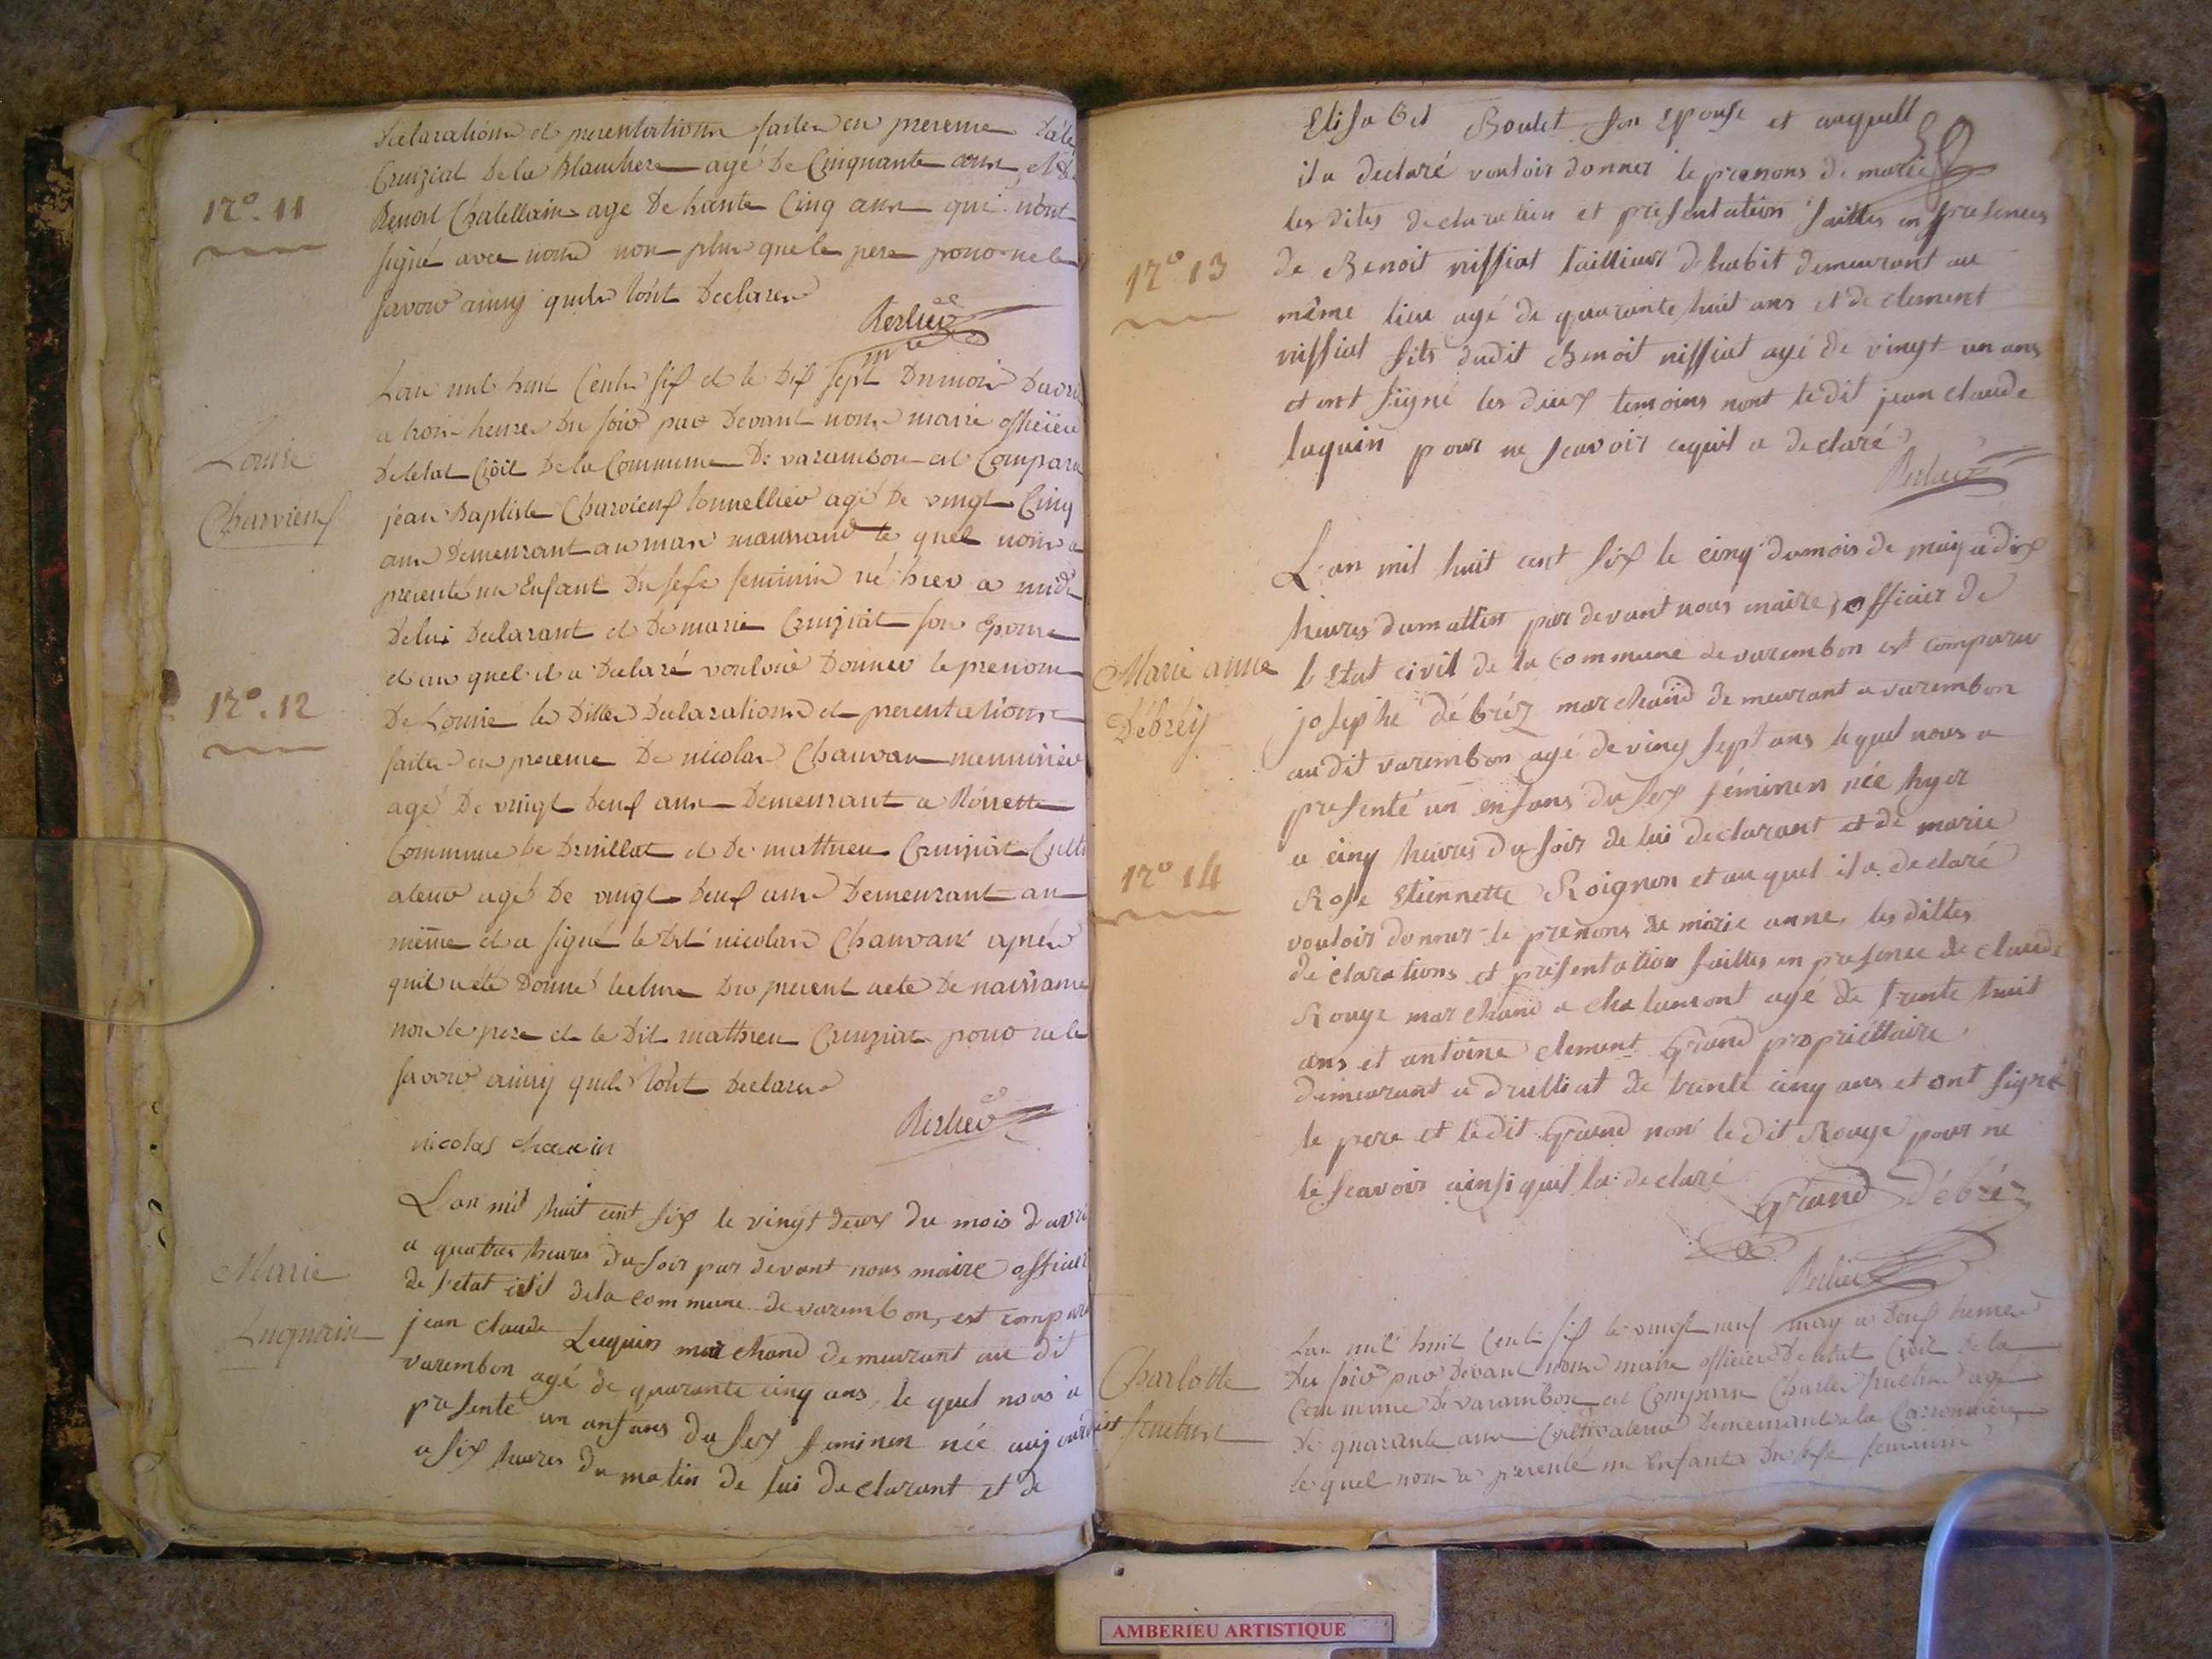 Declarations et presentations faites en presence
Cruiziat de la Blanchere agé de Cinquante ans et de
N.º 11
Benoit Chatellain age de trente Cinq ans qui n'ont
signé avec nous non plus que le pere pour ne le
savoir ainsy quils l'ont declarer
Perlieu
mre
L'an mil huit Cents six et le dix sept du mois d'avril
a trois heures du soir par devant nous maire officier
Louise
de letat Civil de la Commune de varambon est Comparu
Charvieux
jean Baptiste Charvieux tonnellier agé de vingt Cinq
ans demeurant au mas le quel nous a
presenté un Enfant du sexe feminin né hier a midi
de lui declarant et de marie Cruiziat son Epouse
et au quel il a declaré vouloir donner le prenom
N.º 12
de Louise les dittes declarations et presentations
faites en presence de nicolas Chauvan menuisier
agé de vingt deux ans demeurant a Rossettes
Commune de druillat et de mathieu Cruiziat Culti
ateur agé de vingt deux ans demeurant au
même et a signé le dit nicolas Chauvan après
quil a été donné lecture du present acte de naissance
non le pere et le dit mathieu Cruiziat pour ne le
savoir ainsy quils l'ont declarer
Perlieu
nicolas chauvin
L'an mil huit cent six le vingt deux du mois d'avril
a quatres heures du soir par devant nous maire officier
Marie
de l'etat civil de la commune de varembon, est comparu
Luquain
jean claude Luquin marchand demeurant au dit
varembon agé de quarante cinq ans, le quel nous a
presente un anfans du sex feminen née aujourd'hui
a six heures du matin de lui declarant et de
Elisabet Boulet son Epouse et auquell
il a declaré vouloir donner le prenons de marie
les dites declaration et presentation faittes en presences
N.º 13
de Benoit niffiat tailleur d'habit demeurant au
même lieu agé de quarante huit ans et de clement
niffiat fils dudit Benoit niffiat agé de vingt un ans
et ont signé les deux temoins nont ledit jean claude
luquin pour ne scavoir cequil a declaré
Perlieu
L'an mil huit cent six le cinq du mois de may a dix
heures du mattin par devant nous maire, officier de
Marie anne
l'Etat civil de la commune de varembon est comparu
Débréy
josephe débréz marchand demeurant a varembon
audit varembon agé de vinq sept ans lequel nous a
presenté un enfans du sex féminen née hyer
a cinq heures du soir de lui declarant et de marie
N.º 14
Rose Etiennette Roignon et au quel il a declaré
vouloir donner le prenons de marie anne, les dittes
declarations et presentation faittes en presence de claude
Rouge marchand a chalamont agé de trente huit
ans et antoine clement Grand propriettaire
demeurant a drulliat de trente cinq ans et ont signé
le pere et ledit Grand non le dit Rouge pour ne
le scavoir ainsi quil la declaré
Grand Débréz
Perlieu
L'an mil huit Cents six le vingt neuf may a deux heures
du soir par devant nous maire officier de letat Civil de la
Charlotte
Commune de varambon est Comparu Charles agé
de quarante ans Cultivateur demeurant a la Carronniere
le quel nous a presenté un Enfant du sexe feminin
AMBERIEU ARTISTIQUE